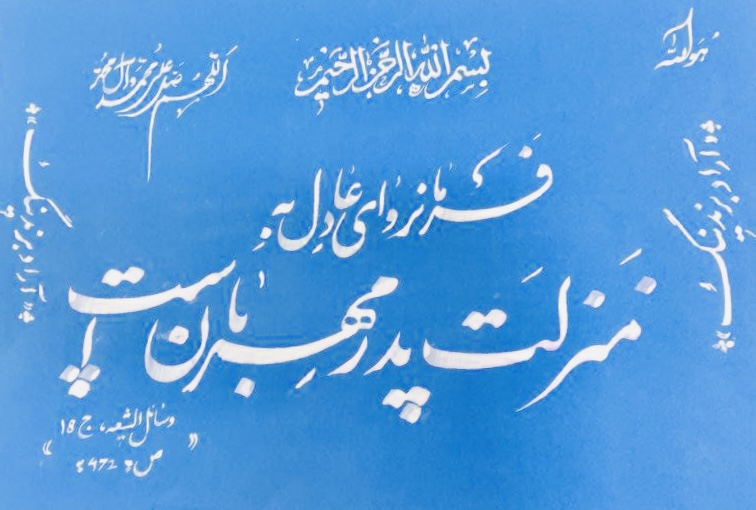 هوالله
بسم الله الرحمن الرحیم
اللهم صل علی محمد و آل محمد
فرمانروای عادل به
منزلت پدر مهربان است
وسائل الشیعه، ج 18
ص 472